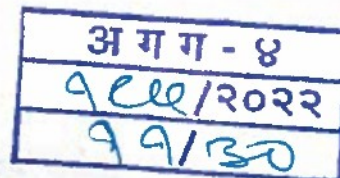 अ ग ग - ४
१८९९/२०२२
११/३०